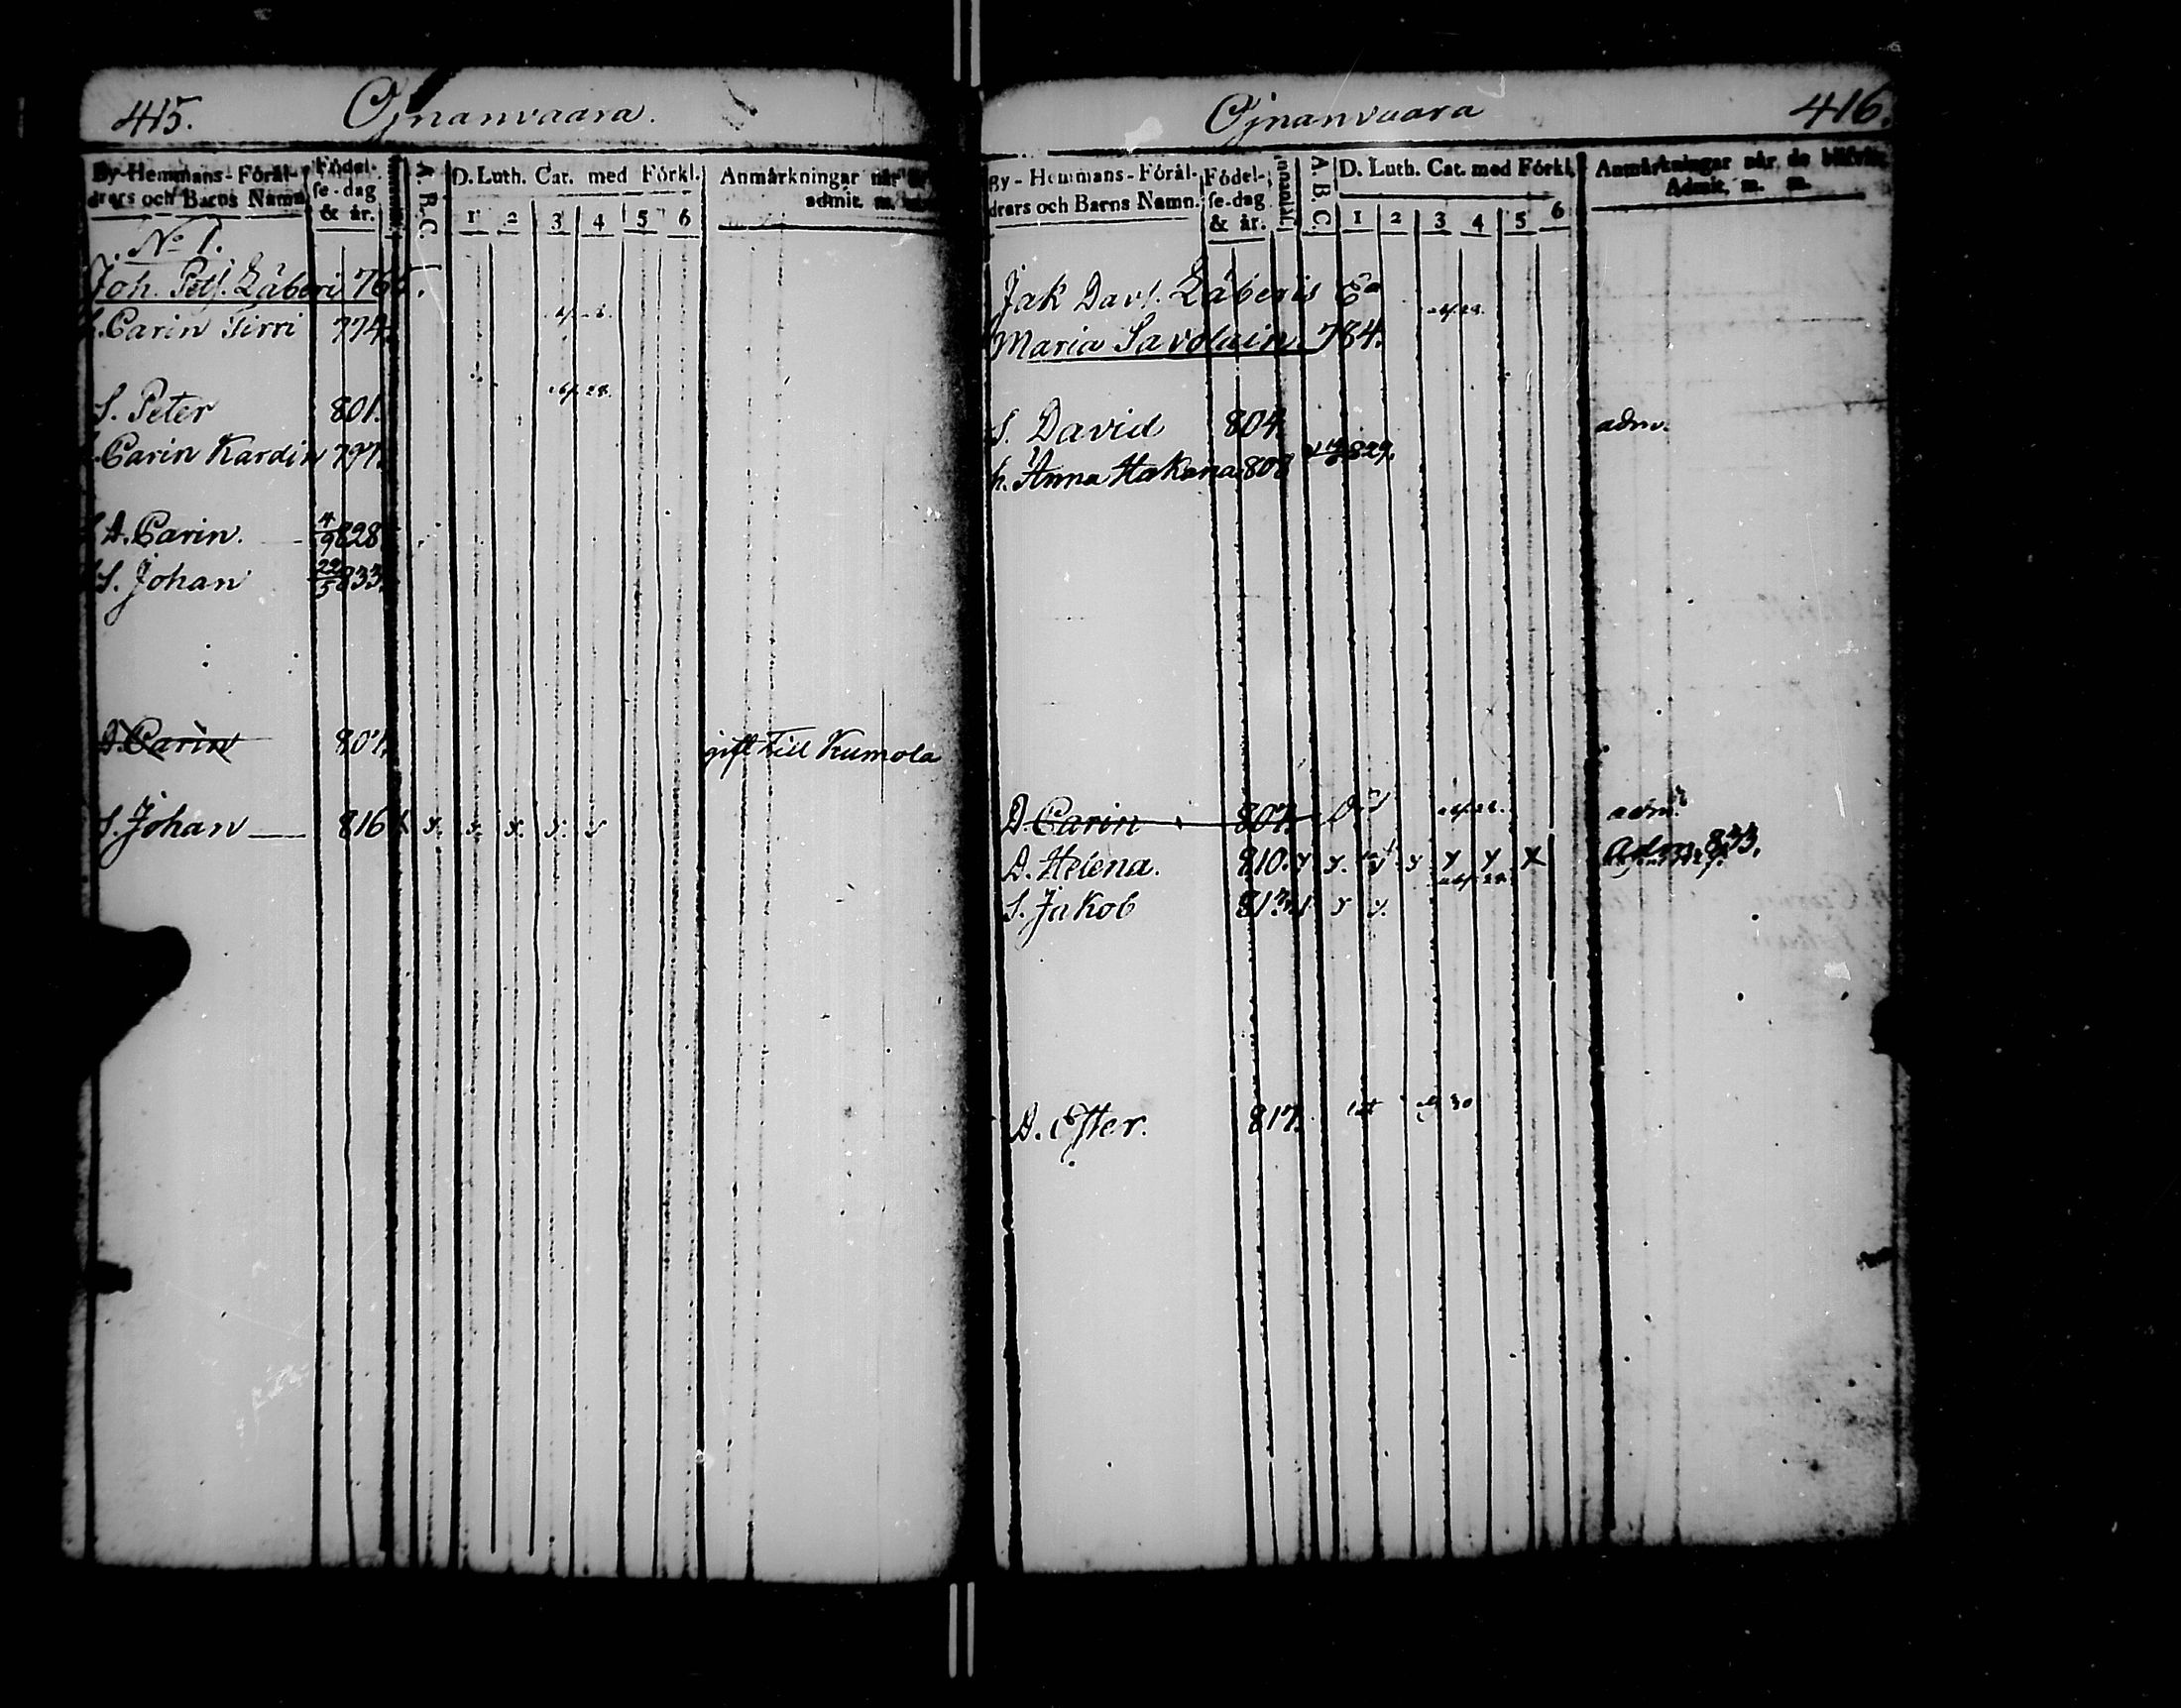 415. Ojnanvaara.
By-Hemmans-Föräl- drars och Barns Namn. Födel- se-dag & år. A. B. C. D. Luth. Cat. med Förkl. 1 2 3 4 5 6 Anmärkningar när admit. m.
No 1.
Joh. Petf. Läberi 765.
h. Carin Tirri 774.
S. Peter 801.
h. Carin Kardin 797.
D. Carin. 4/9 828
S. Johan 22/5 833.
D. Carin 807. gift till Kumola
S. Johan 816
Ojnanvaara 416.
By-Hemmans-Föräl- drars och Barns Namn. Födel- se-dag & år. Innanläsn. A. B. C. D. Luth. Cat. med Förkl. 1 2 3 4 5 6 Anmärkningar när de blifvit Admit. m. m.
Jak Davf. Läberis Ea
Maria Savolain. 784.
S. David 804. adm.
h. Anna Hakana 808 829.
D. Carin 807. adm.
D. Helena. 810. Adm. 833.
S. Jakob 813.
D. Efter. 817.